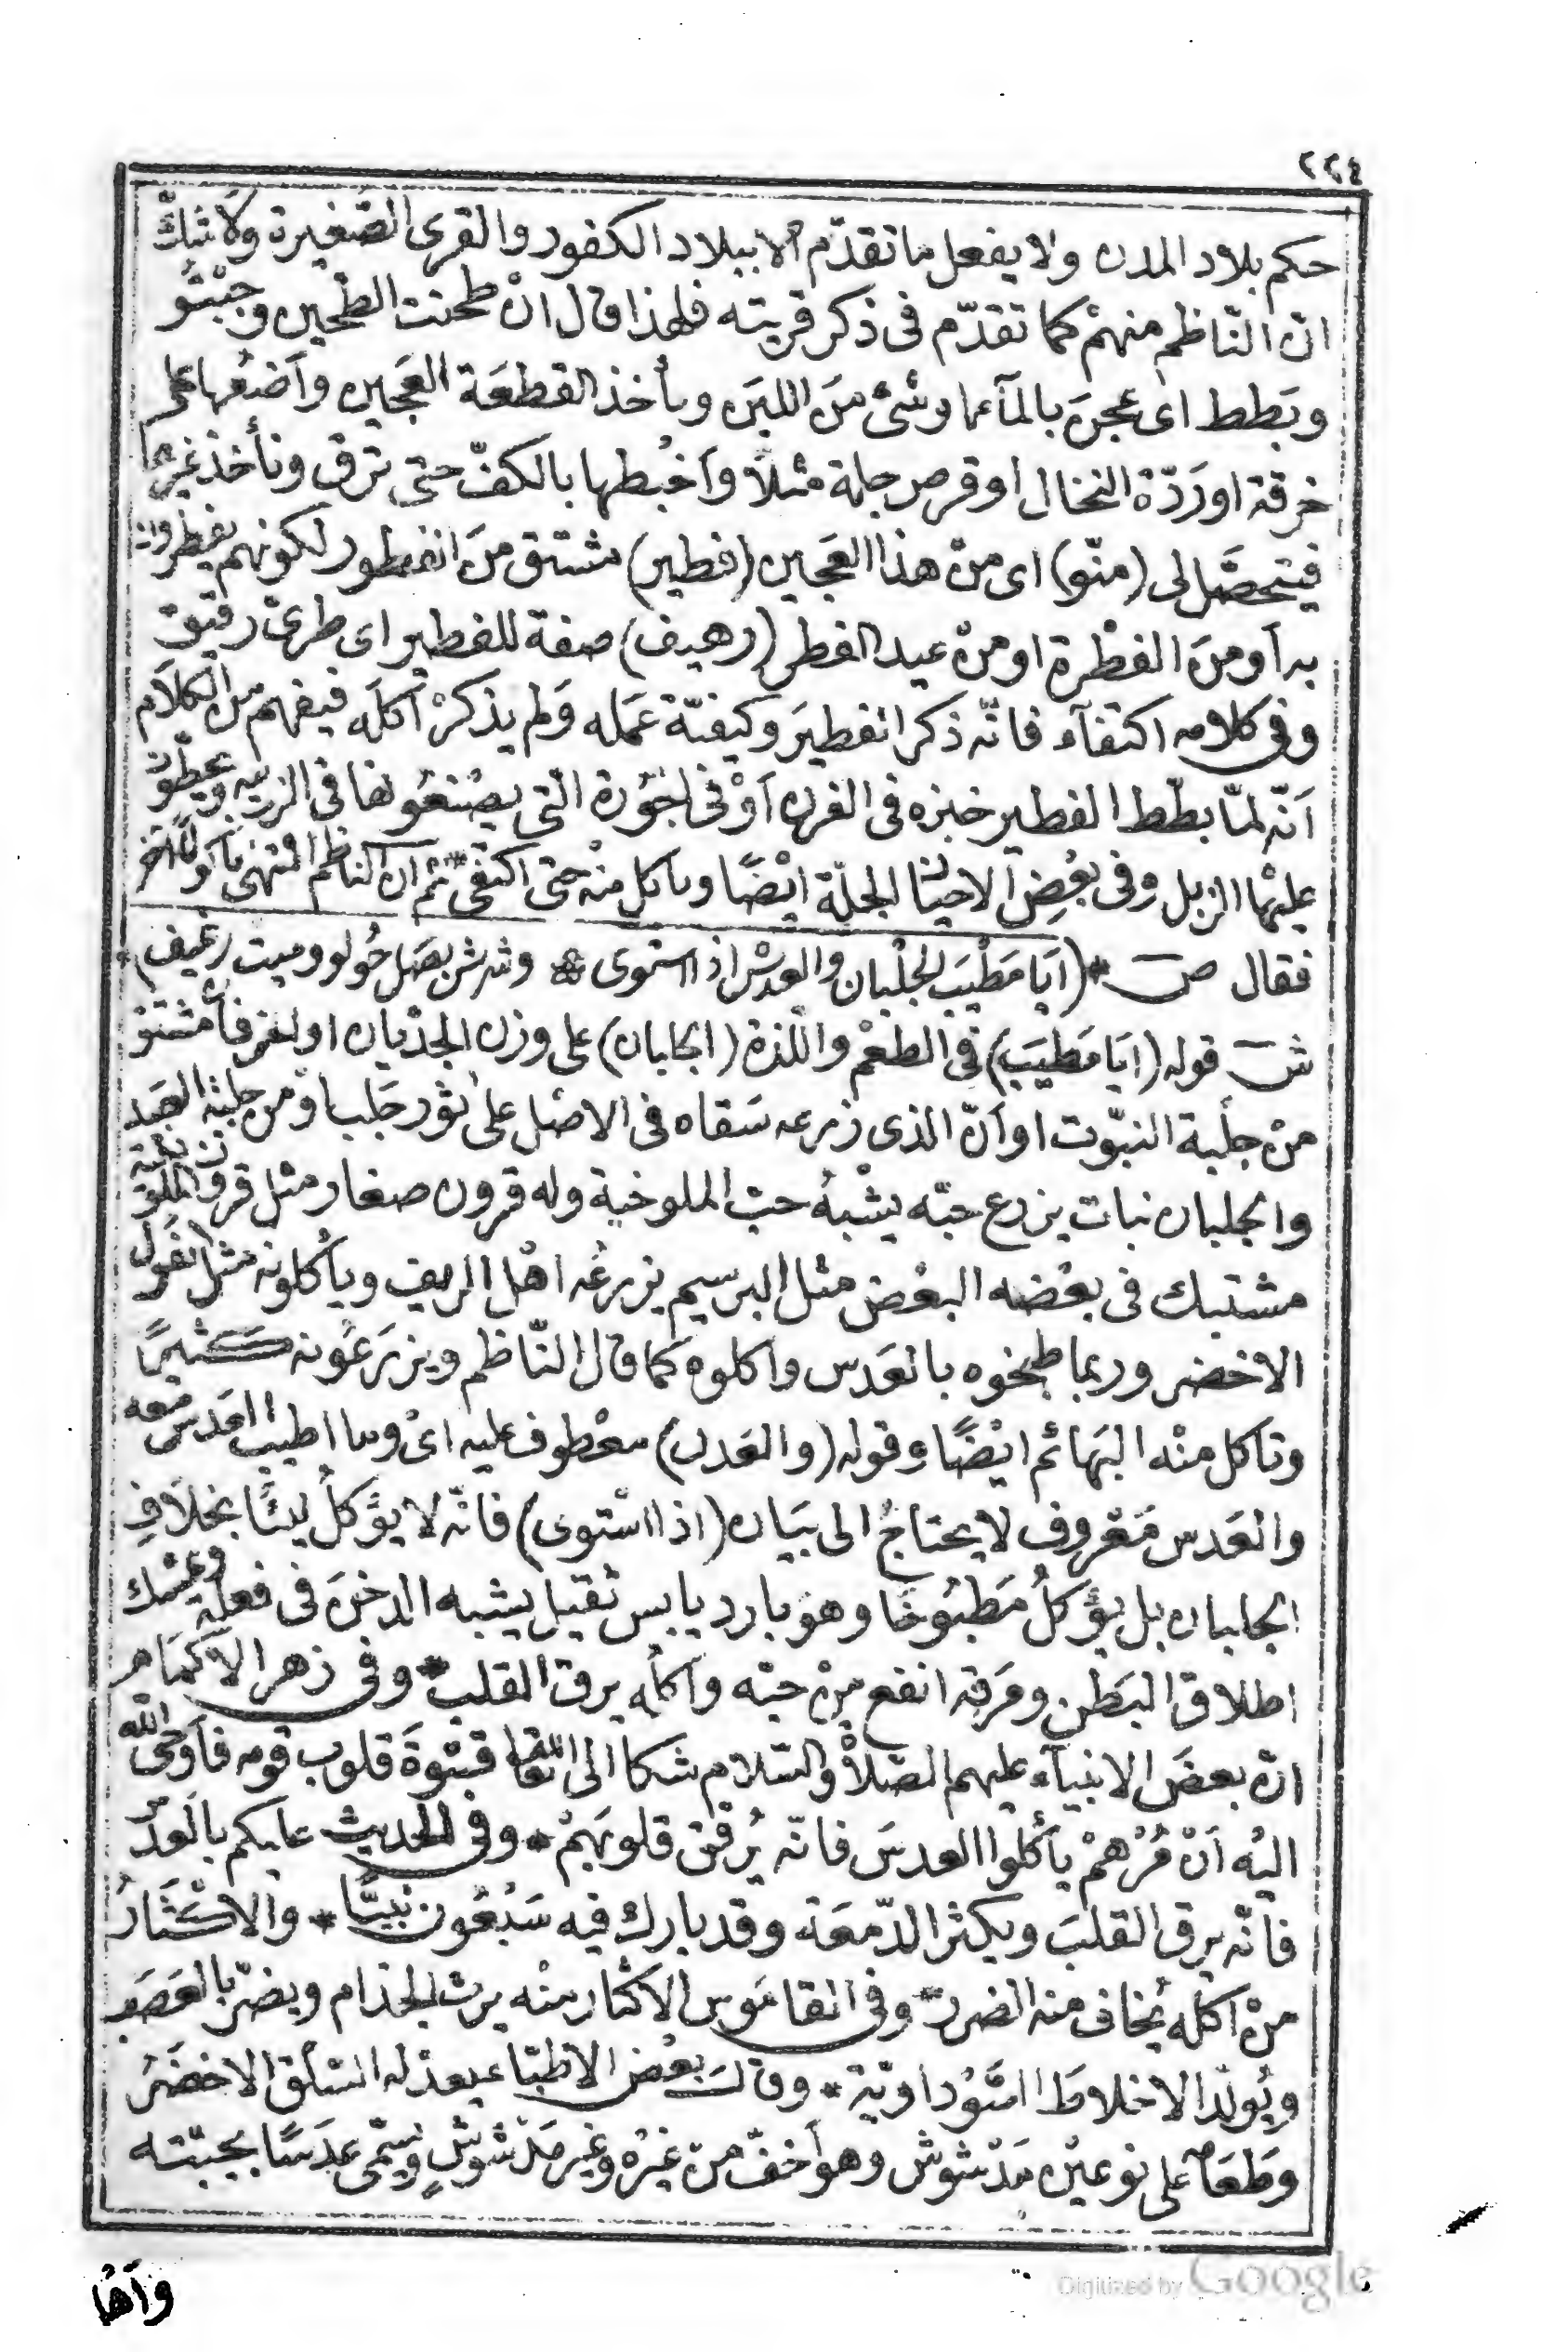 ٢٢٤
حكم بلاد المدن ولا يفعل ما تقدّم الا ببلاد الكفور والقرى الصّغيرة ولا شكّ
انّ النّاظم منهمْ كما تقدّم فى ذكر قريته فلهذا قال انْ طحنت الطّحين وجبْتُو
وبَطط اى عجنَ بالمآء او شئ منَ اللبَن وىأخذ القطعَة العَجين وأضعُها على
خرقة او رَدّة النخال او قرص جلة مثلاً وأخبُطها بالكفّ حتى ترق ونأخذ غيرها
فيتحصَّل لى (منّو) اى منْ هذا العَجين (فطير) مشتق منَ الفطور لكونهم يفطرون
به أو منَ الفطْرة او منْ عيد الفطر (رهيف) صفة للفطير اى طرىّ رقيق
وفى كلامه اكتفآء فانّه ذكر الفطيرَ وكيفيّة عمَله وَلم يذكرْ أكلَه فيفهم من الكلاَم
أنّه لمّا بطّط الفطير خبزه فى الفرن أوْ فى الجَوْرة التّى يصْنعُونها فى الزريبه ويحطّون
عليْها الزبل وفى بعْضِ الاحيان الجلّة ايْضًا وىاكل منْه حتى اكتفىّ * ثم ان الناظم اشتهى مأكولاً آخر
فقال ص * (اَيَا مَطْيَب الجلْبان والعدسْ اذا استوى * وشرش بصَل حُولو وميت رغيف) *
ش قوله (ايَا مَطيَب) فى الطعْم واللّذة (الجلبان) على وزن الجدْيان او الخرفان مشتق
منْ جلْبة النبّوت او أنّ الذى زرعه سَقاه فى الاصْل على ثوْر جَلب او من جلبة العبيد
والجلبان نبات يزرع حبّه يشْبهُ حبّ الملوخية وله قرون صغار مثل قرون الملوخية
مشتبك فى بعْضه البعْض مثل البرسيم يزرعُه اهْل الريف ويأكلونه مثل الفول
الاخضر وربما طبخوه بالعَدس واكلوه كما قال النّاظم ويزرَعُونه كثيرًا
وتاكل منْه البَهائم ايْضًا وقوله (والعَدس) معْطوف عليه اىْ وما اطيب العَدس معه
والعَدس مَعْروف لا يحتاجُ الى بيَان (اذا اسْتوى) فانّه لا يؤكلُ نيئًا بخلاَفِ
الجلبان بل يؤكلُ مَطبُوخا وهوَ بارد يابس ثقيل يشبه الدخنَ فى فعله وعنه
اطلاق البَطن ومَرقه انفع منْ حبّه واكله يرق القلب * وفى زهر الاكمَام
انّ بعضَ الانبيآء عليهم الصّلاةُ والسّلام شكا الى الله تعَا قسْوَةَ قلوب قومه فأوحىَ الله
اليْه أنْ مُرْهمْ يأكلوا العدسَ فانّه يُرقق قلوبَهمْ * وفى الحديث عليكم بالعَدس
فانّه يرق القلبَ ويكثر الدّمعَة وقد بارك فيه سَبْعُون نبيًّا * والاكثَارُ
منْ اكله يُخاف منه الضرر * وفى القامَوس الاكثار منْه يرث الجذام ويضرّ بالعَصَب
ويُولّد الاخلاطَ السَّوْداويّة * وقال بعْض الاطبّا يعدله السّلق الاخضرُ
وطعَام على نوعيْن مَدْشوش وهو أخفّ من غيْره وغير مَدْشوشٍ ويسمّى عدَسًا بجبّته
وأهْا
Digitized by Google